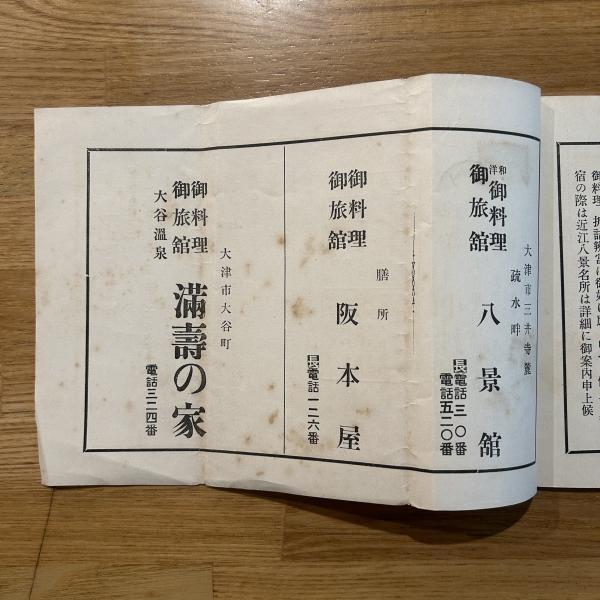 御料理 折詰辨當は御
宿の際は近江八景名所は詳細に御案内申上候
和洋御料理
御旅舘
大津市三井寺麓
疏水畔
八景舘
長電話三一〇番
電話五二〇番
御料理
御旅舘
膳所
阪本屋
長電話一二六番
大津市大谷町
御料理
御旅舘
大谷溫泉
滿壽の家
電話三二四番